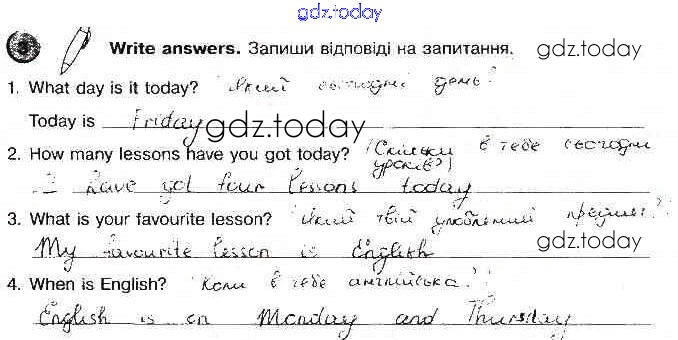 gdz.today
Write answers. Запиши відповіді на запитання. gdz.today
1. What day is it today? Який сьогодні день?
Today is Friday gdz.today
2. How many lessons have you got today? (Скільки в тебе сьогодні
уроків?)
I have got four lessons today
3. What is your favourite lesson? Який твій улюблений предмет?
My favourite lesson is English gdz.today
4. When is English? Коли в тебе англійська?
English is on Monday and Thursday